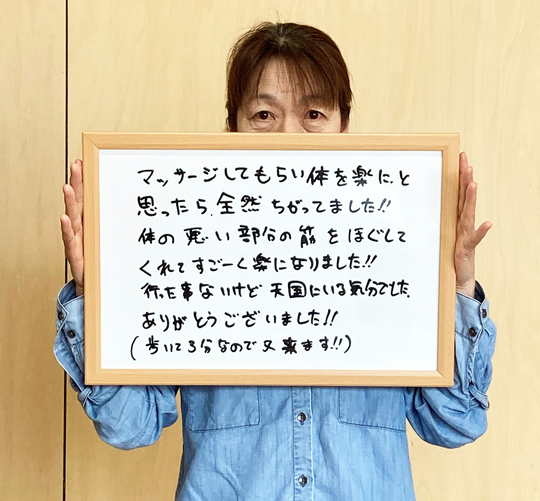 マッサージしてもらい体を楽に、と
思ったら、全然ちがってました!!
体の悪い部分の筋をほぐして
くれてすごーく楽になりました!!
行った事ないけど天国にいる気分でした。
ありがとうございました!!
(歩いて3分なので又来ます!!)